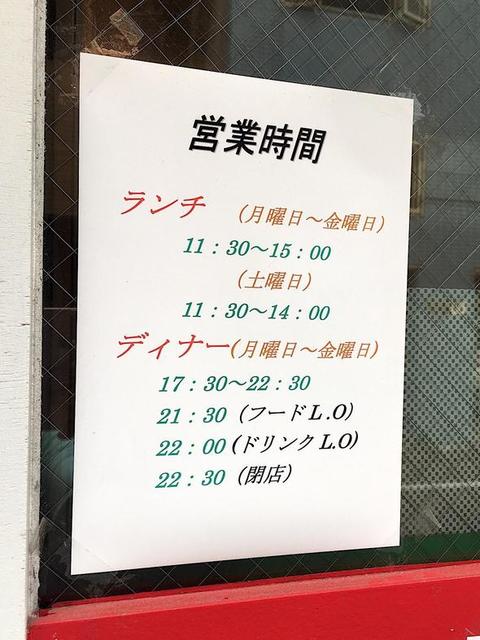 営業時間
ランチ （月曜日～金曜日）
11：30～15：00
（土曜日）
11：30～14：00
ディナー（月曜日～金曜日）
17：30～22：30
21：30（フードL.O）
22：00（ドリンクL.O）
22：30（閉店）